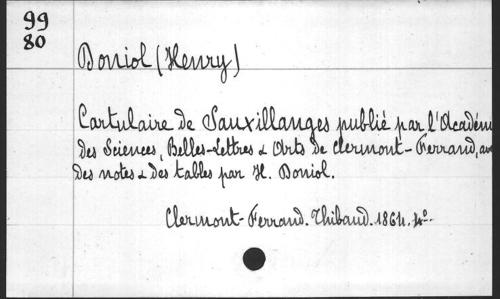 99
80
Doniol (Henry)
Cartulaire de Sauxillanges publié par l'Académ
des Sciences, Belles-Lettres & Arts de Clermont-Ferrand, av
des notes & des tables par H. Doniol.
Clermont-Ferrand. Thibaud. 1864. 4º.